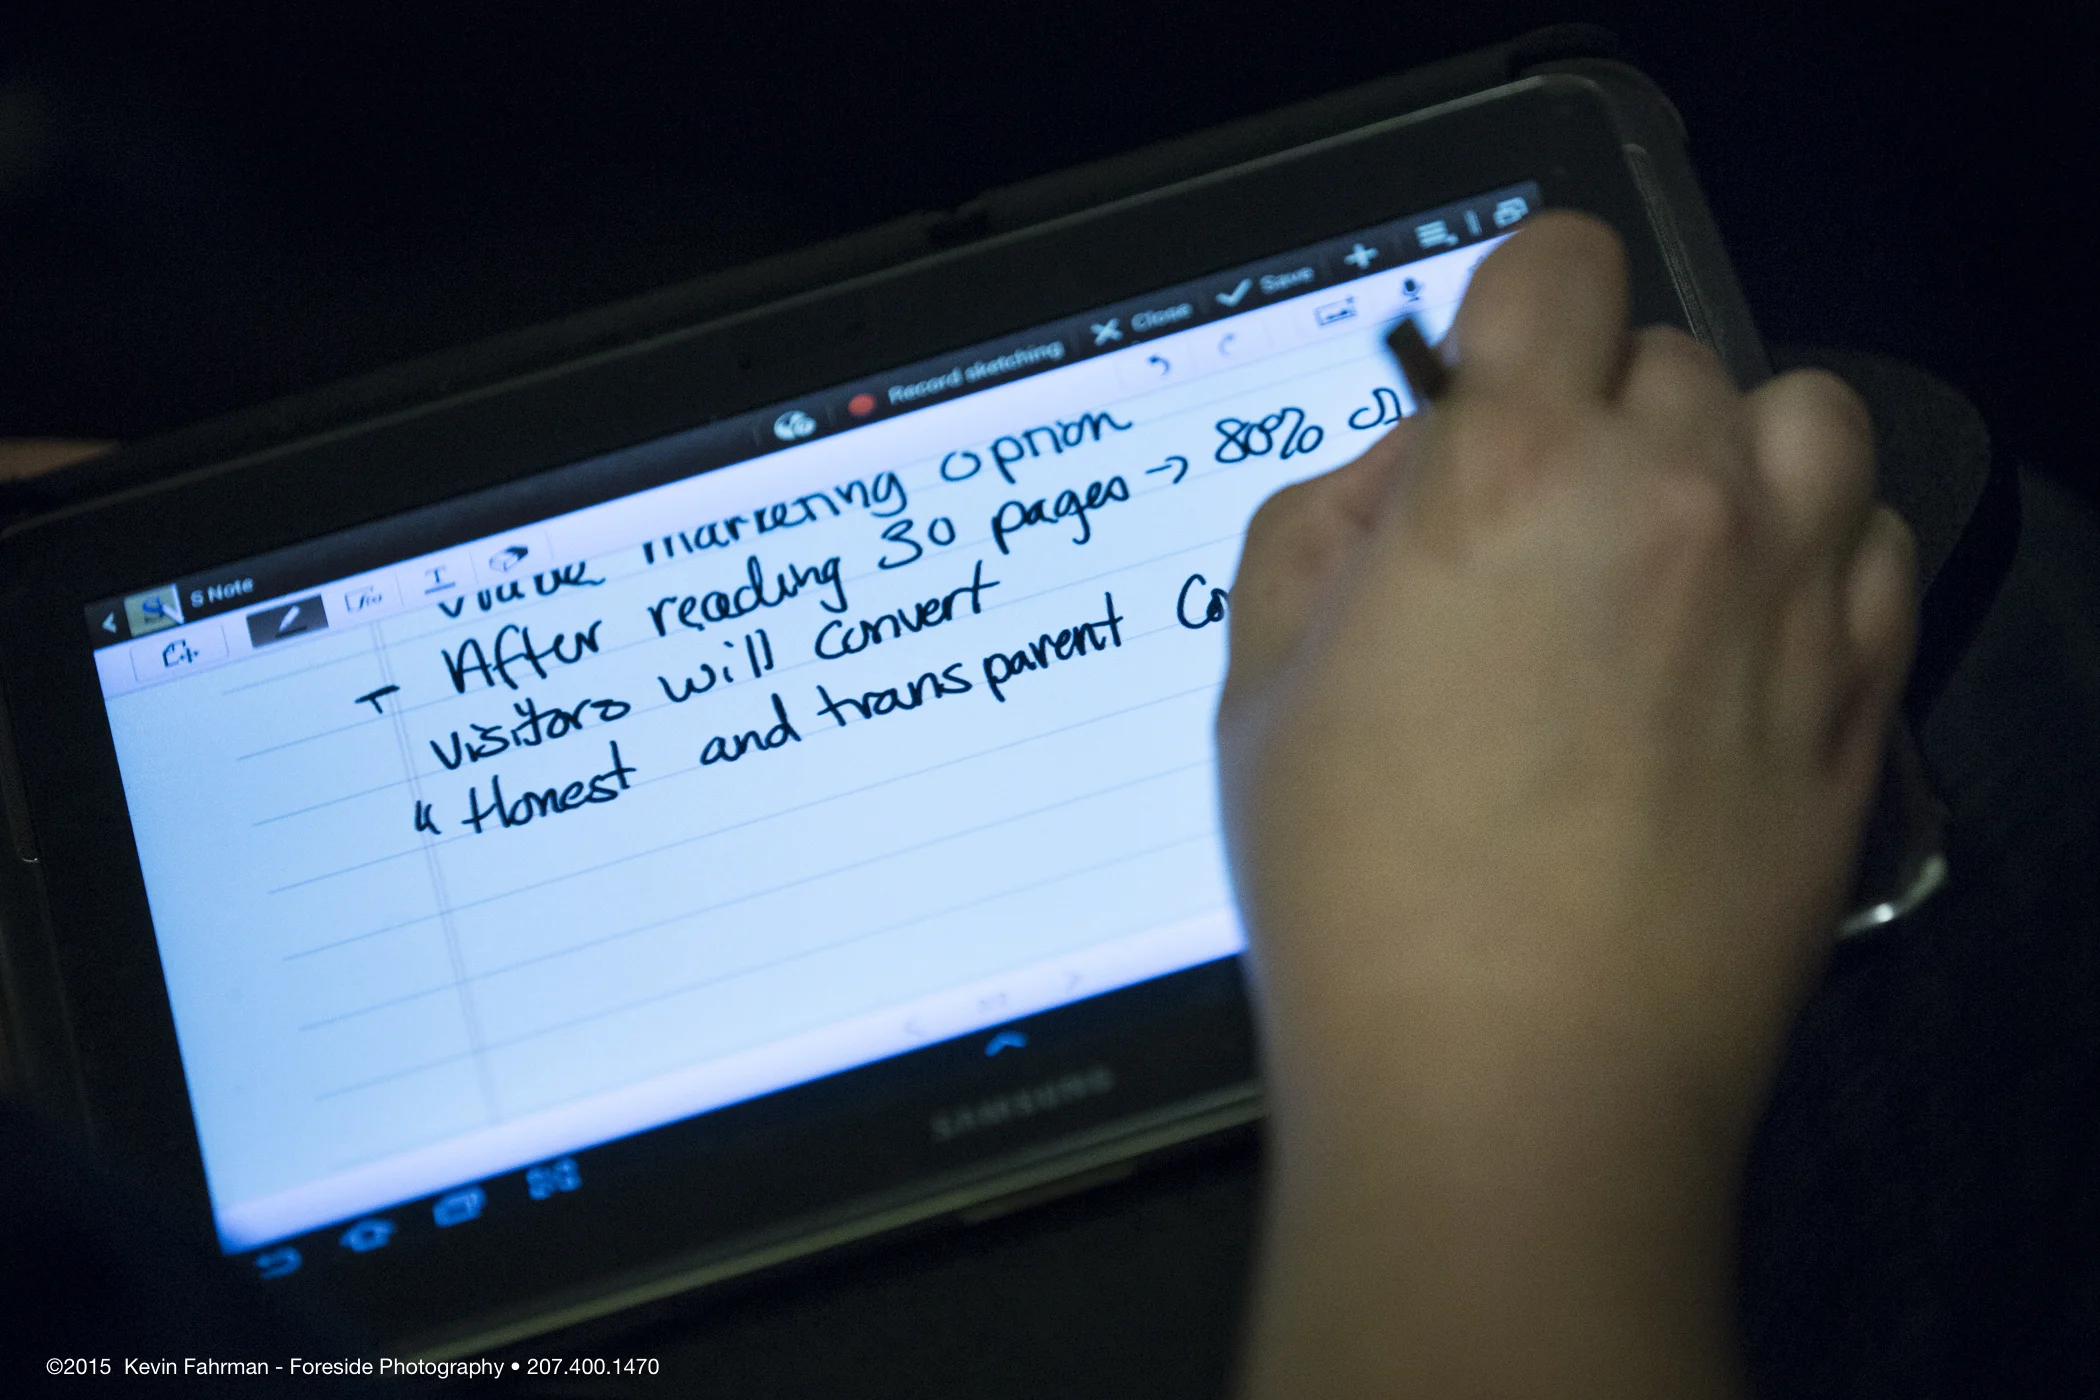 S Note
Record sketching
Close
Save
viable marketing option
- After reading 30 pages → 80% of
visitors will convert
"Honest and transparent Co
SAMSUNG
©2015 Kevin Fahrman - Foreside Photography • 207.400.1470